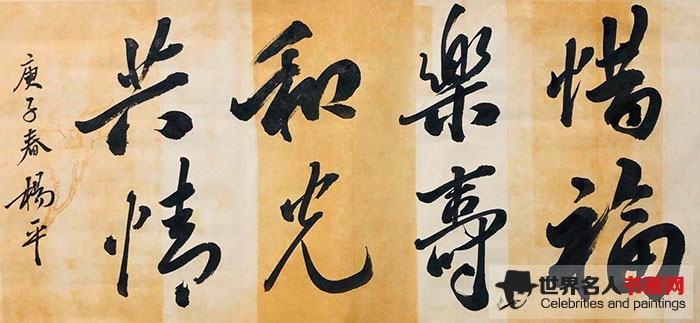 惜福
樂壽
和光
共情
庚子春楊平
世界名人书画网
Celebrities and paintings